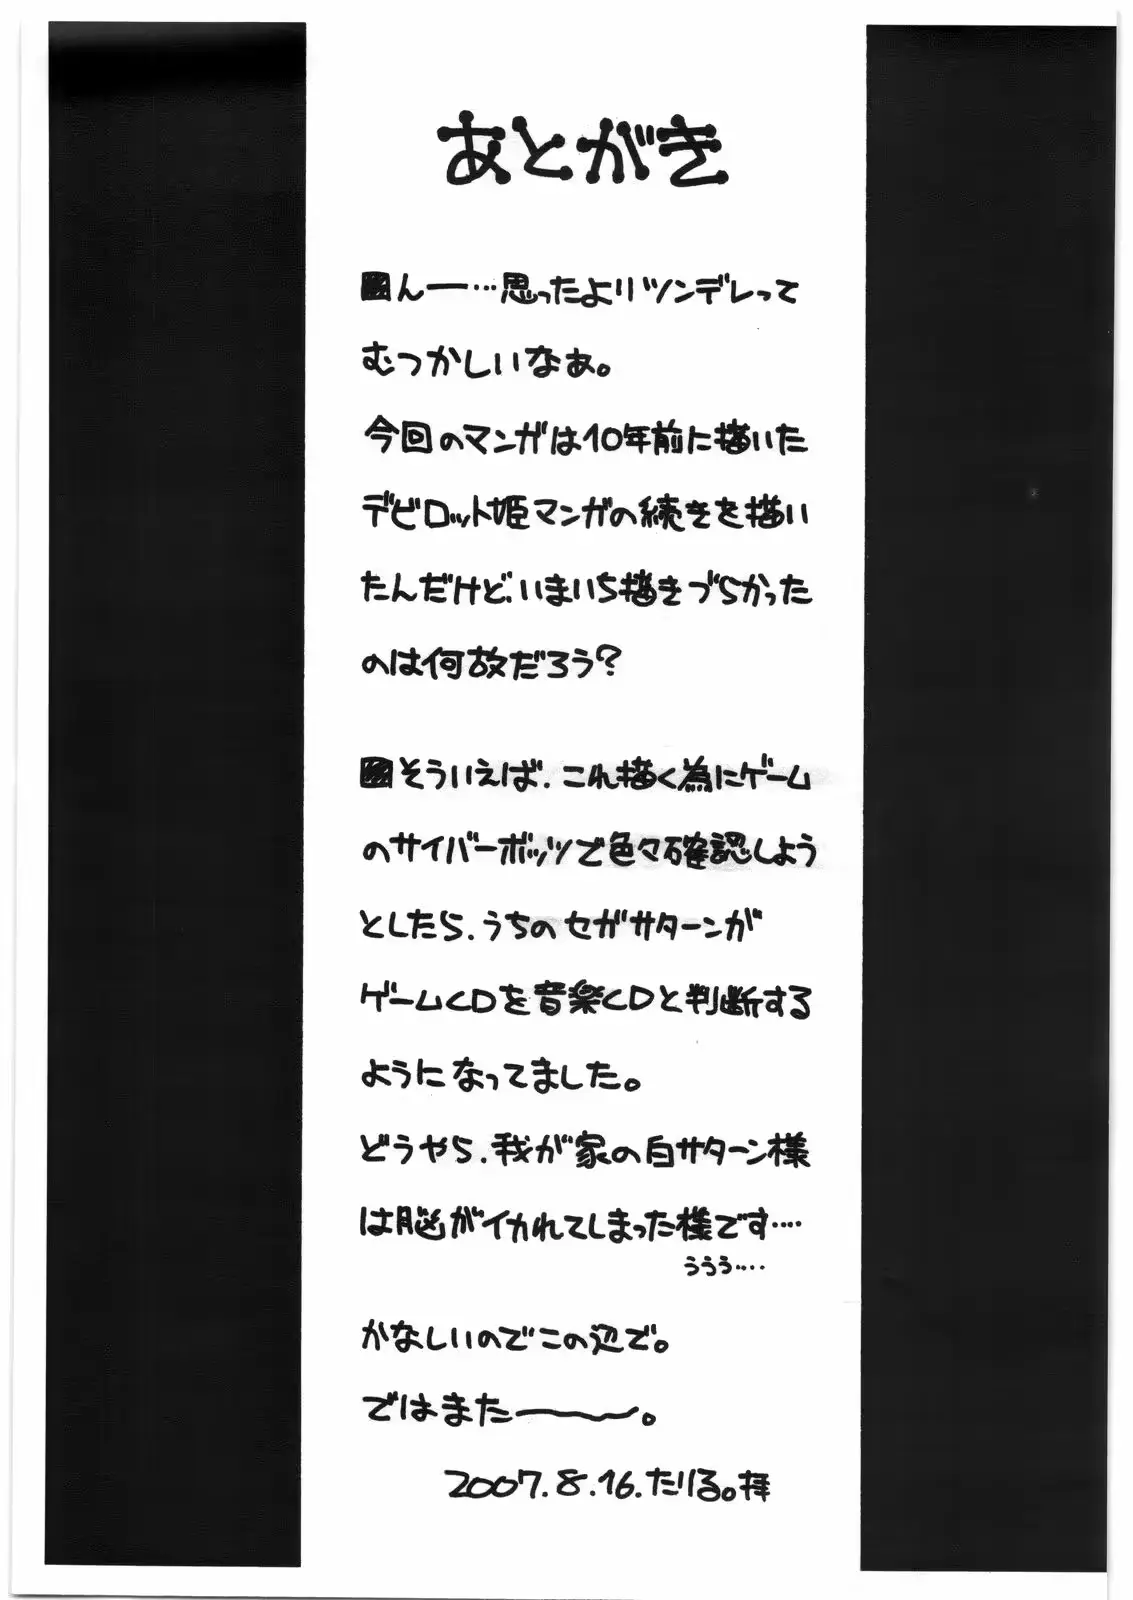 あとがき
■んー…思ったよりツンデレって
むつかしいなぁ。
今回のマンガは10年前に描いた
デビロット姫マンガの続きを描い
たんだけど、いまいち描きづらかった
のは何故だろう?
■そういえば、これ描く為にゲーム
のサイバーボッツで色々確認しよう
としたら、うちのセガサターンが
ゲームCDを音楽CDと判断する
ようになってました。
どうやら、我が家の白サターン様
は脳がイカれてしまった様です‥‥
ううう‥‥
かなしいのでこの辺で。
ではまた――〜。
2007.8.16.たりる。拝